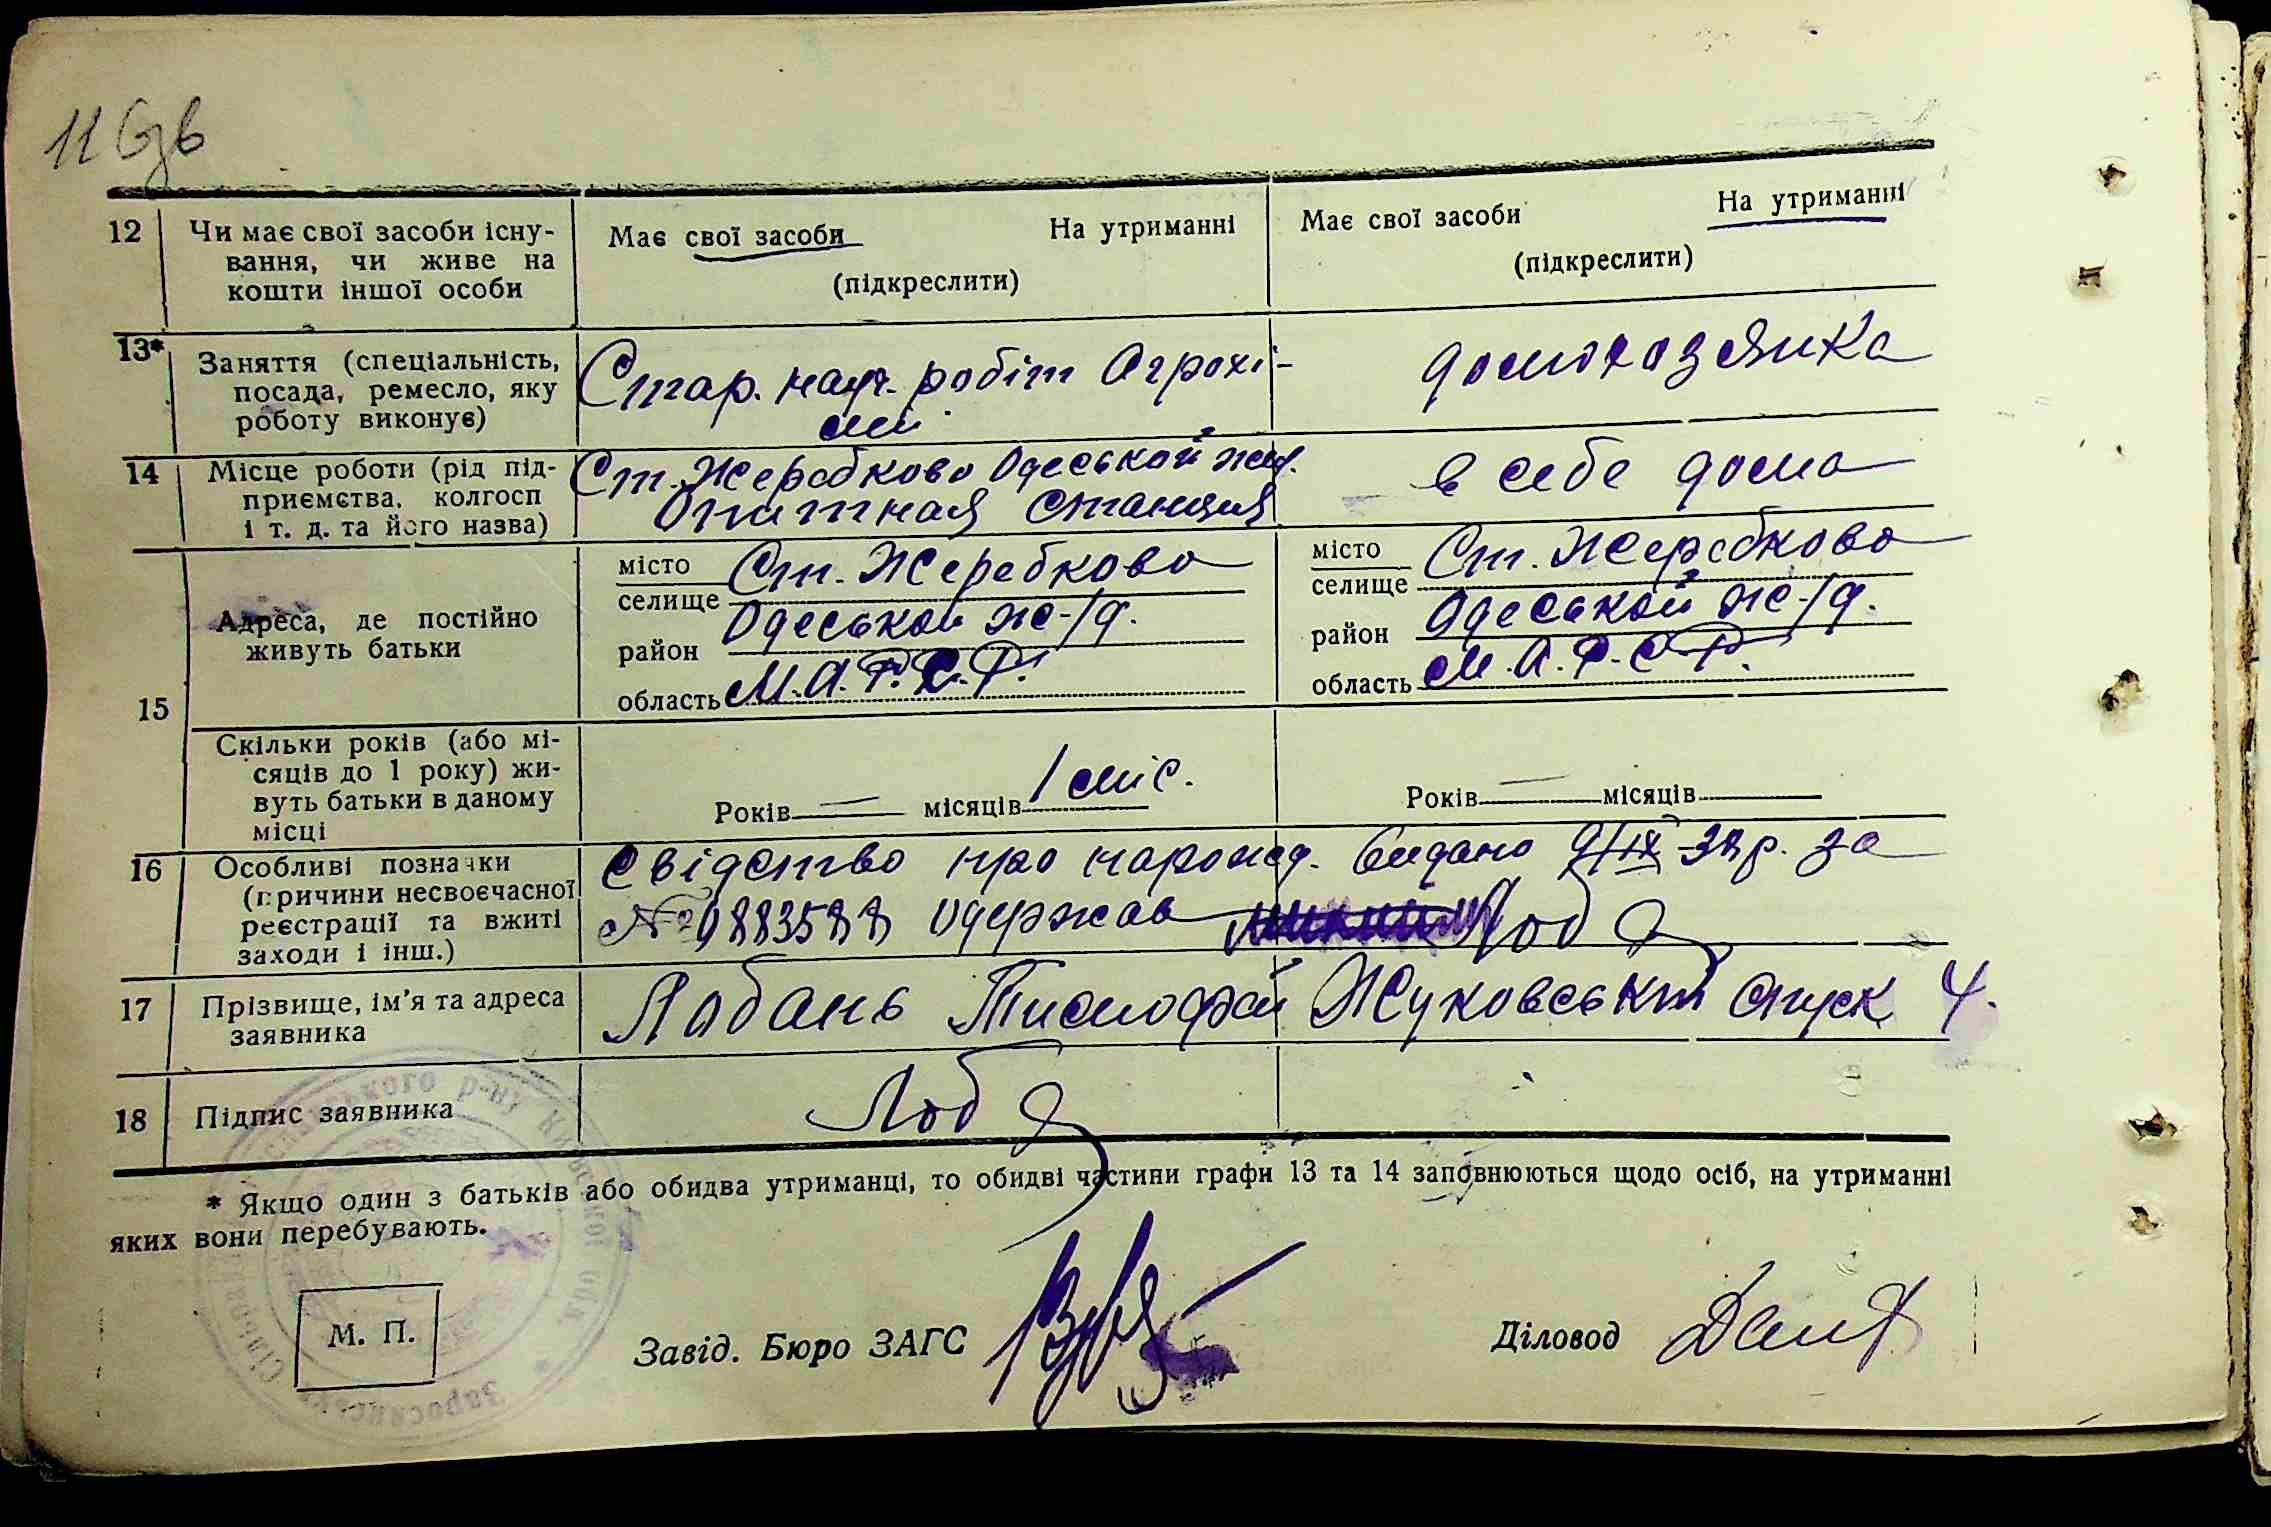 11 6 зв
12 Чи має свої засоби існу- Має свої засоби На утриманні Має свої засоби На утриманні
вання, чи живе на (підкреслити) (підкреслити)
кошти іншої особи
13* Заняття (спеціальність, Стар. науч. робіт Агрохі- домохозяйка
посада, ремесло, яку мії
роботу виконує)
14 Місце роботи (рід під- Ст. Жеребково Одеськой жел. в себе дома
приємства, колгосп Опитная станция
і т. д. та його назва)
15 Адреса, де постійно живуть батьки
місто Ст. Жеребково місто Ст. Жеребково
селище Одеськой ж-/д. селище Одеськой ж-/д.
район район
область М.А.Р.С.Р. область М.А.Р.С.Р.
Скільки років (або мі-
сяців до 1 року) жи-
вуть батьки в даному
місці
Років — місяців 1 міс. Років — місяців
16 Особливі позначки Свідотство про нарожд. видано 9/IX-38р. за
(причини несвоєчасної № 0883588 одержав Лоб
реєстрації та вжиті
заходи і інш.)
17 Прізвище, ім'я та адреса Лобань Тимофей Жуковський спуск 4.
заявника
18 Підпис заявника Лоб
* Якщо один з батьків або обидва утриманці, то обидві частини графи 13 та 14 заповнюються щодо осіб, на утриманні
яких вони перебувають.
М. П.
Завід. Бюро ЗАГС Діловод